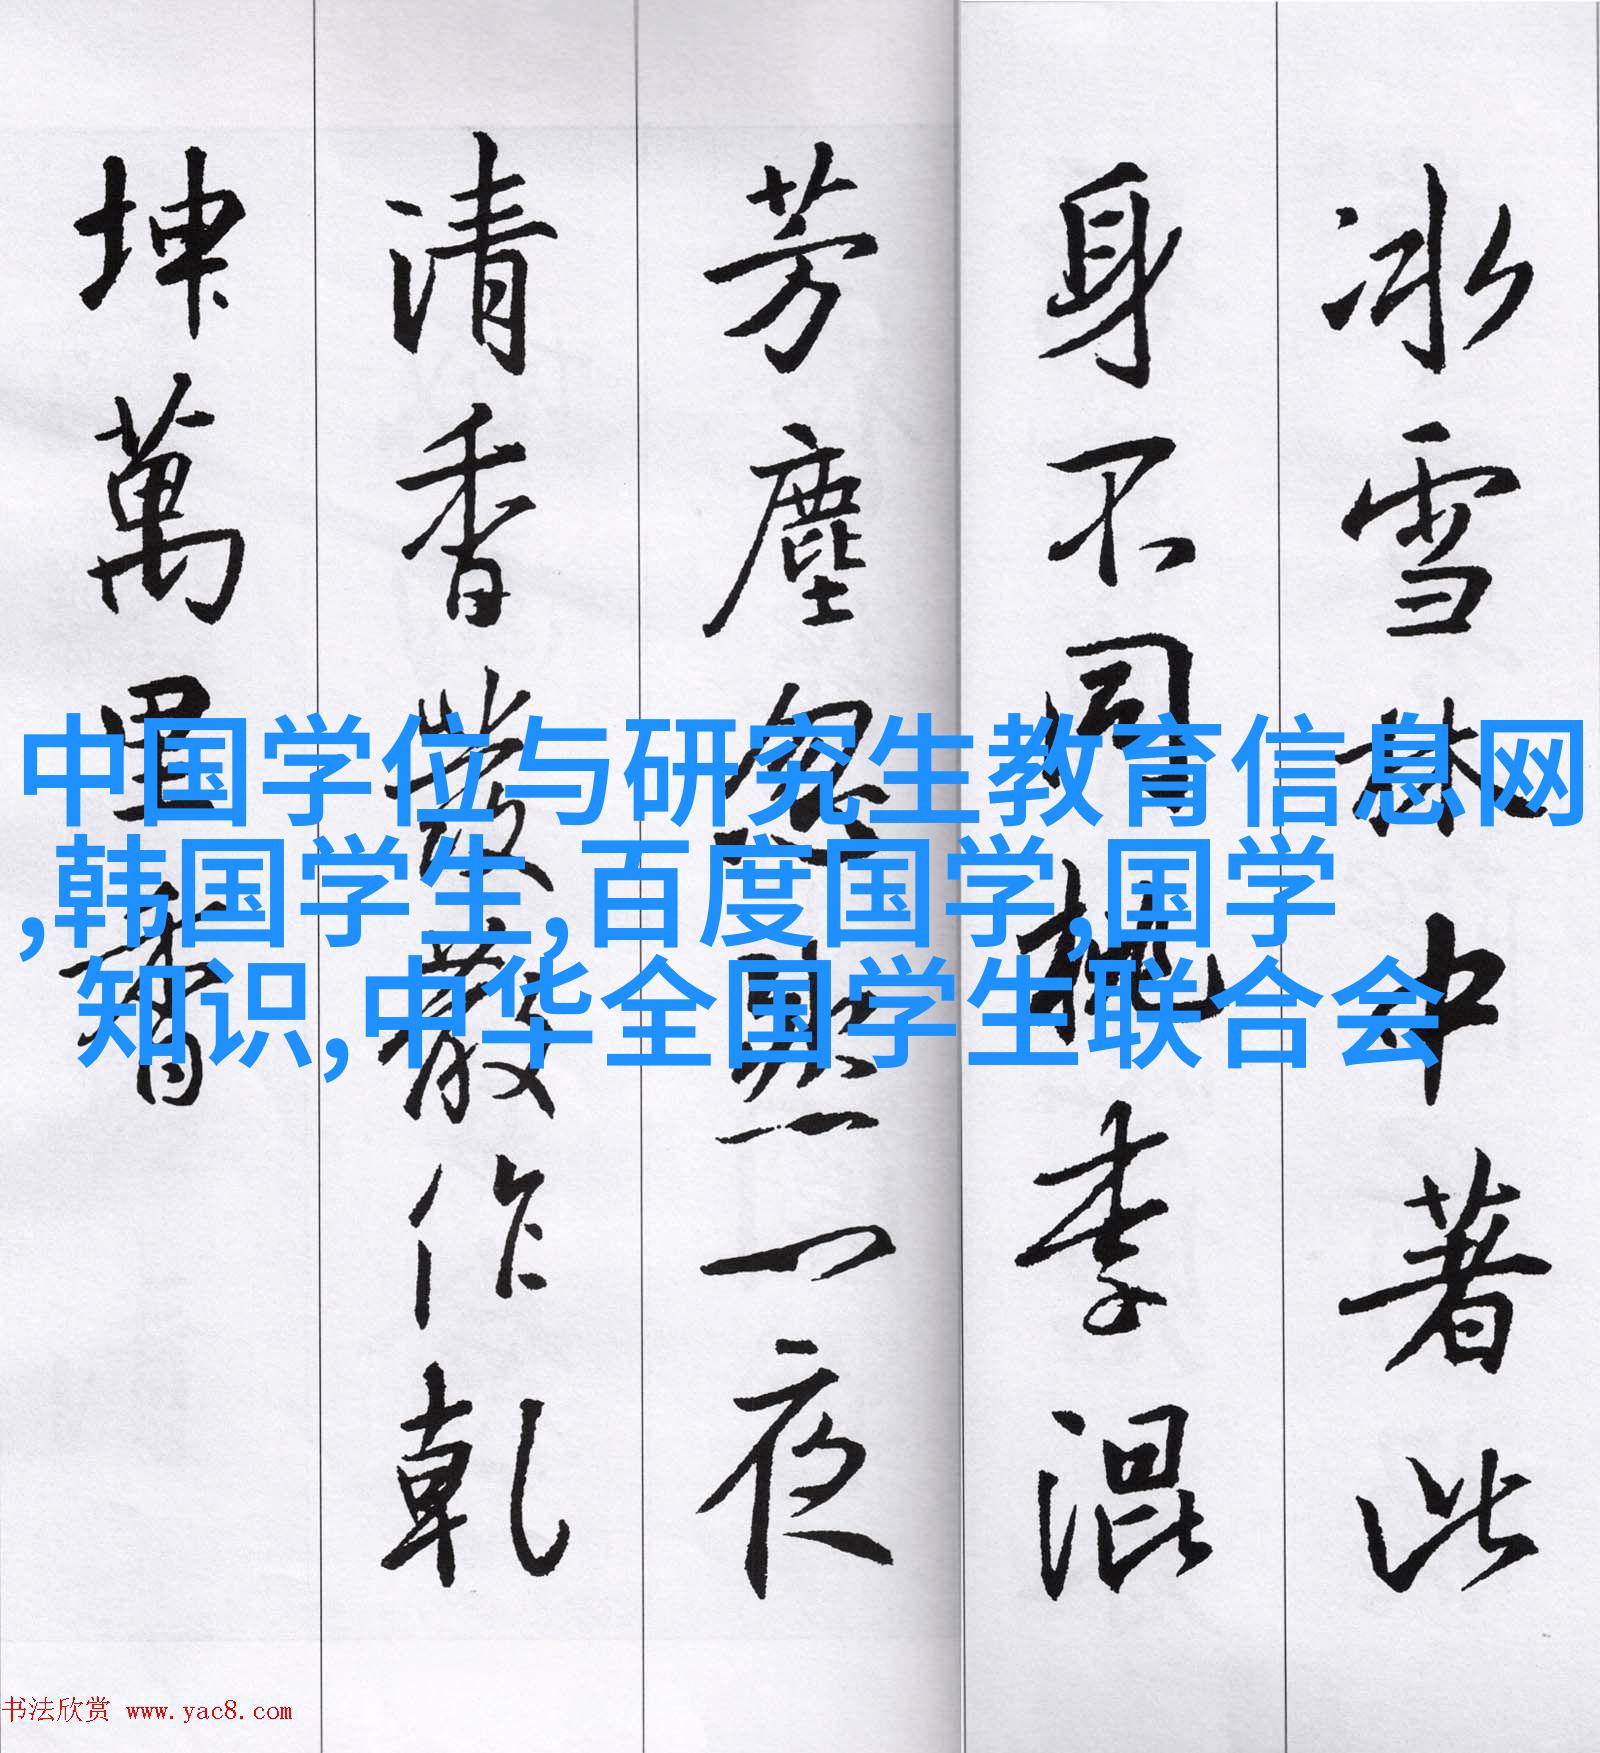 冰雪林中著此
身不同桃李混
芳塵忽然一夜
清香發散作乾
坤萬里春
中国学位与研究生教育信息网
,韩国学生,百度国学,国学
知识,中华全国学生联合会
书法欣赏 www.yac8.com